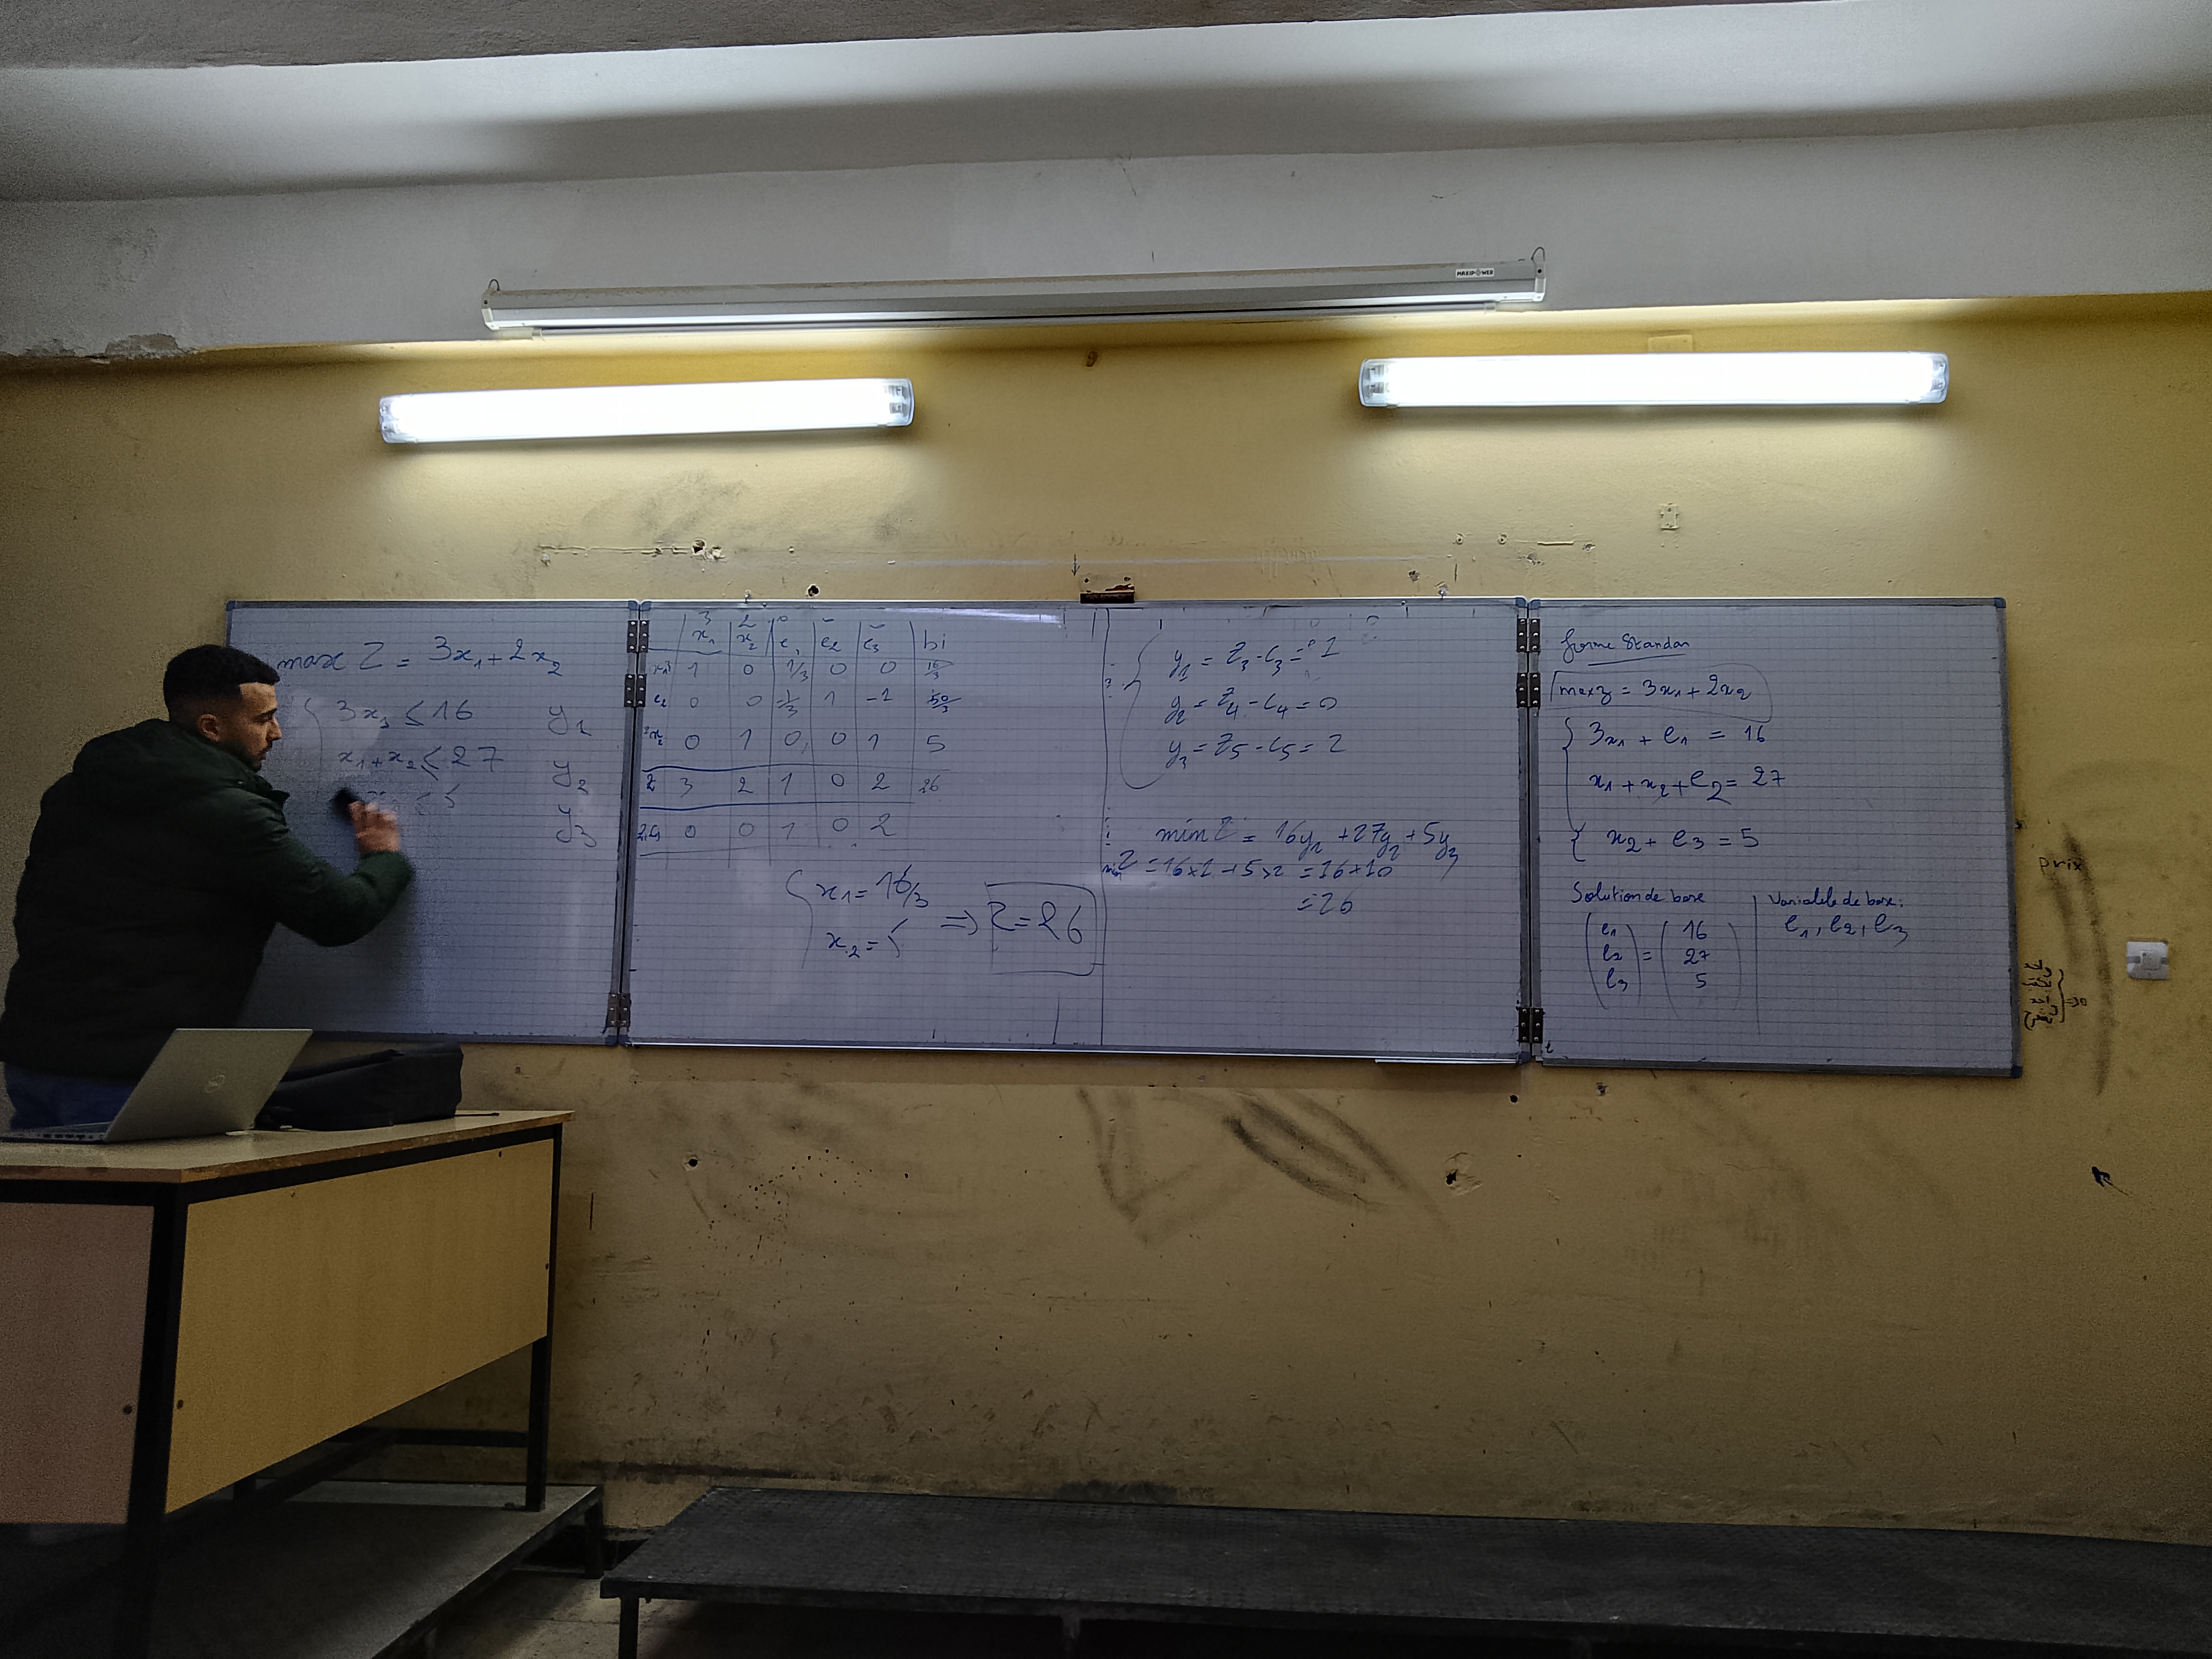 max Z = 3x₁ + 2x₂
3x₁ ≤ 16 y₁
x₁ + x₂ ≤ 27 y₂
≤ 5 y₃
3 2 0
x₁ x₂ e₁ e₂ e₃ bi
1 0 1/3 0 0 16/3
e₂ 0 0 1 -1 50/3
x₂ 0 1 0 0 1 5
Z 3 2 1 0 2 26
0 0 1 0 2
x₁ = 16/3
x₂ = 5 ⇒ Z = 26
y₁ = Z₃ - C₃ = 1
y₂ = Z₄ - C₄ = 0
y₃ = Z₅ - C₅ = 2
min Z = 16y₁ + 27y₂ + 5y₃
min Z = 16×1 + 5×2 = 16 + 10
= 26
forme Standar
max z = 3x₁ + 2x₂
3x₁ + e₁ = 16
x₁ + x₂ + e₂ = 27
x₂ + e₃ = 5
Solution de base
e₁ 16
e₂ = 27
e₃ 5
Variable de base:
e₁, e₂, e₃
prix
MAXIPOWER
DELL